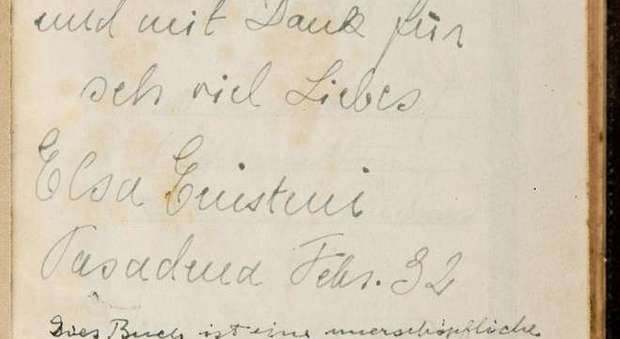 und mit Dank für
sehr viel Liebes
Elsa Einstein
Pasadena Febr. 32
Dies Buch ist eine unerschöpfliche